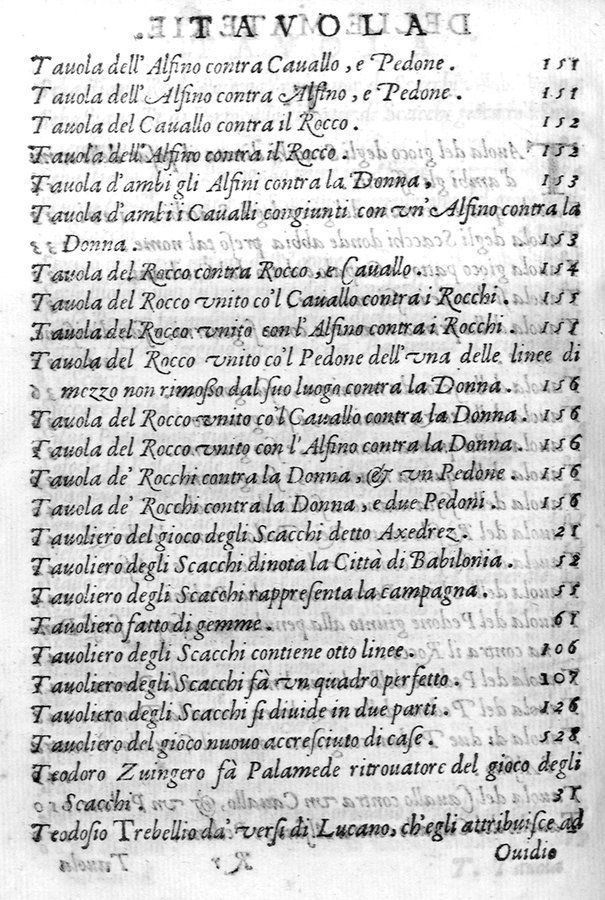 TAVOLA
Tauola dell' Alfino contra Cauallo, e Pedone. 151
Tauola dell' Alfino contra Alfino, e Pedone. 151
Tauola del Cauallo contra il Rocco. 152
Tauola dell' Alfino contra il Rocco. 152
Tauola d'ambi gli Alfini contra la Donna, 153
Tauola d'ambi i Caualli congiunti con vn' Alfino contra la
Donna. 153
Tauola del Rocco contra Rocco, e Cauallo. 154
Tauola del Rocco vnito co'l Cauallo contra i Rocchi. 155
Tauola del Rocco vnito con l' Alfino contra i Rocchi. 155
Tauola del Rocco vnito co'l Pedone dell' vna delle linee di
mezzo non rimoßo dal ſuo luogo contra la Donna. 156
Tauola del Rocco vnito co'l Cauallo contra la Donna. 156
Tauola del Rocco vnito con l' Alfino contra la Donna. 156
Tauola de' Rocchi contra la Donna, & vn Pedone. 156
Tauola de' Rocchi contra la Donna, e due Pedoni. 156
Tauoliero del gioco degli Scacchi detto Axedrez. 21
Tauoliero degli Scacchi dinota la Città di Babilonia. 52
Tauoliero degli Scacchi rappreſenta la campagna. 55
Tauoliero fatto di gemme. 61
Tauoliero degli Scacchi contiene otto linee. 106
Tauoliero degli Scacchi fà vn quadro perfetto. 107
Tauoliero degli Scacchi ſi diuide in due parti. 126
Tauoliero del gioco nuouo accreſciuto di caſe. 528
Teodoro Zuingero fà Palamede ritrouatore del gioco degli
Scacchi. 31
Teodoſio Trebellio da' verſi di Lucano, ch'egli attribuiſce ad
Ouidio